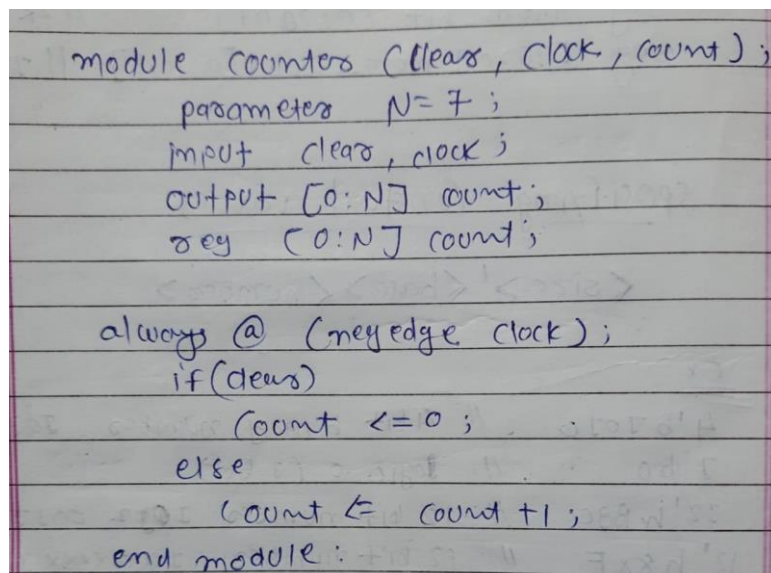 module counter (clear, clock, count);
parameter N=7;
input clear, clock;
output [0:N] count;
reg [0:N] count;
always @ (negedge clock);
if(clear)
count <=0;
else
count <= count +1;
end module: